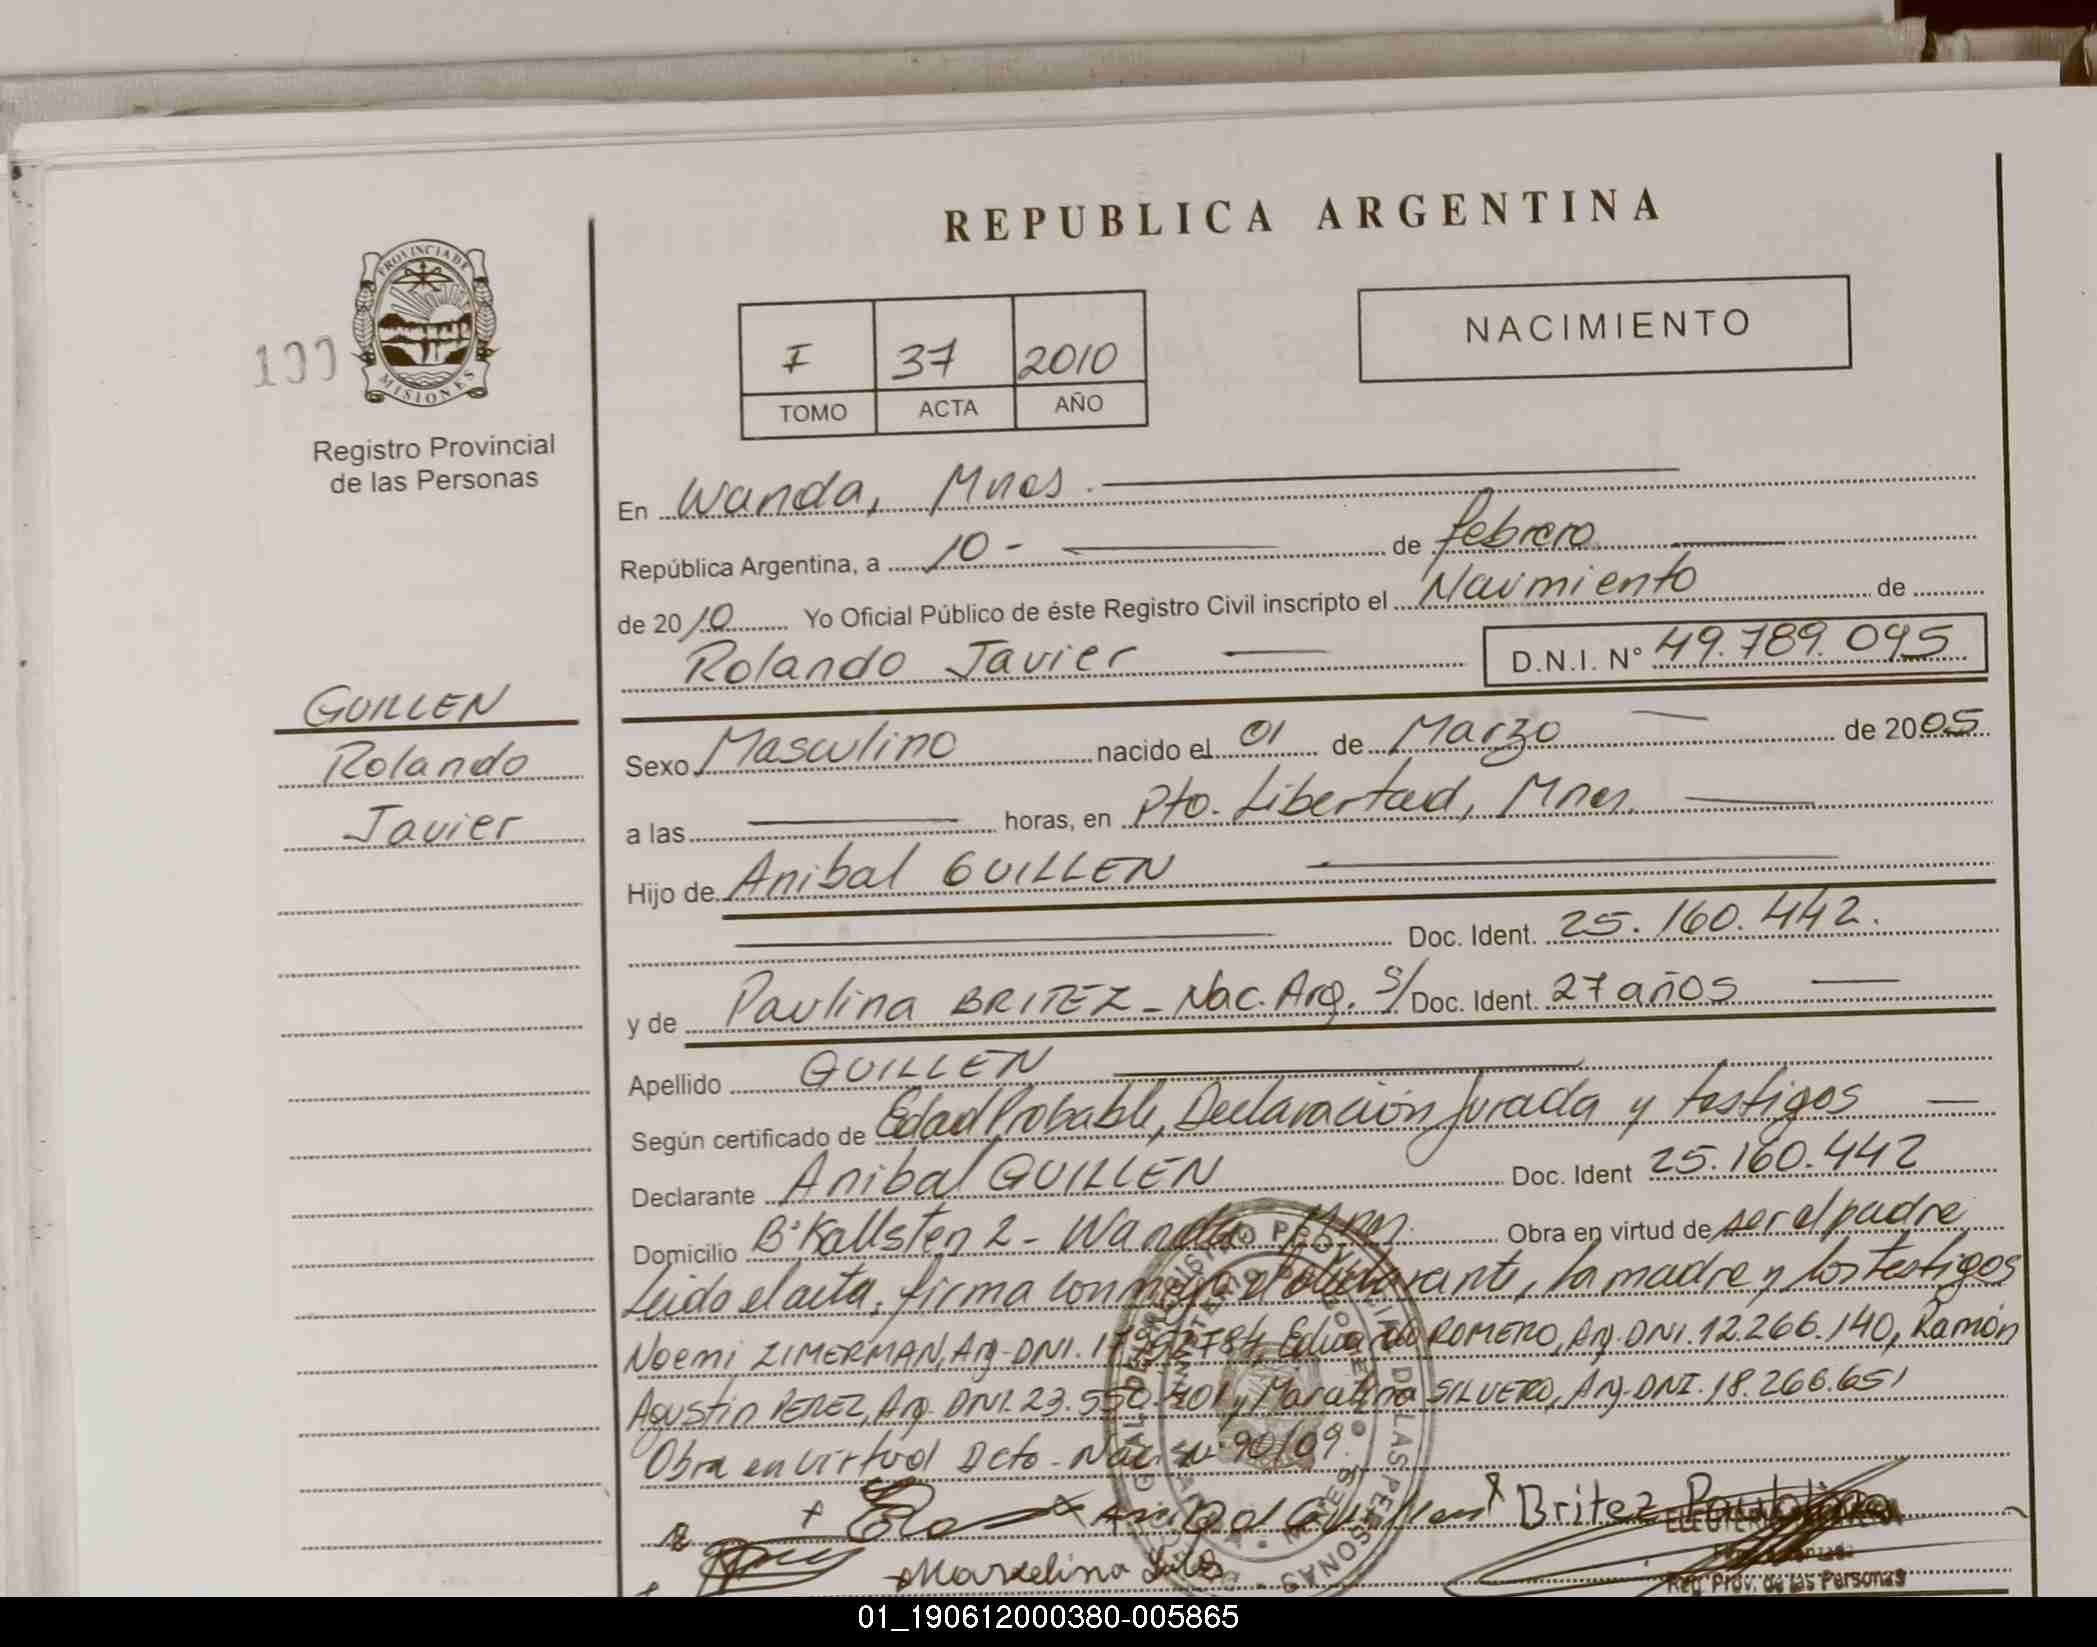 REPUBLICA ARGENTINA
PROVINCIA DE
MISIONES
100
Registro Provincial
de las Personas
I 37 2010
TOMO ACTA AÑO
NACIMIENTO
En Wanda, Mnes.
República Argentina, a 10 - de febrero
de 2010 Yo Oficial Público de éste Registro Civil inscripto el Nacimiento de
Rolando Javier D.N.I. N° 49.789.095
GUILLEN
Rolando
Javier
Sexo Masculino nacido el 01 de Marzo de 2005
a las horas, en Pto. Libertad, Mnes.
Hijo de Anibal GUILLEN
Doc. Ident. 25.160.442.
y de Paulina BRITEZ - Nac. Arg. S/ Doc. Ident. 27 años
Apellido GUILLEN
Según certificado de Edad Probable, Declaración Jurada y testigos
Declarante Anibal GUILLEN Doc. Ident 25.160.442
Domicilio B° Kallsten 2 - Wanda Mnes. Obra en virtud de ser el padre
Leido el acta, firma conmigo el declarante, la madre y los testigos
Noemi ZIMERMAN, Arg. DNI. Eduardo ROMERO, Arg. DNI. 12.266.140, Ramón
Agustin PEREZ, Arg. DNI. 23.550.401 y Marcelina SILVERO, Arg. DNI. 18.266.651
Obra en virtud Dcto. Nac. N° 90/09.
Anibal Guillen Britez Paublina
Marcelina
Reg. Prov. de las Personas
01_190612000380-005865